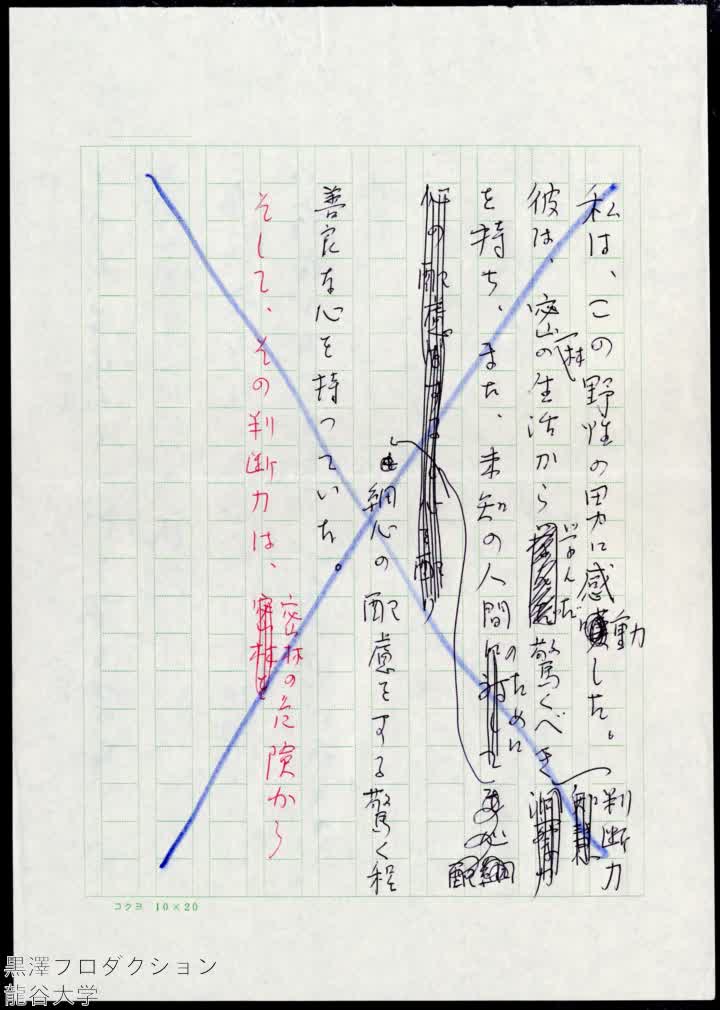 私は、この野性の男に感動した。
彼は、密林の生活から学んだ驚くべき判断力
を持ち、また、未知の人間のために
細心の配慮をする驚く程
善良な心を持っていた。
そして、その判断力は、密林の危険から
コクヨ 10×20
黒澤プロダクション
龍谷大学